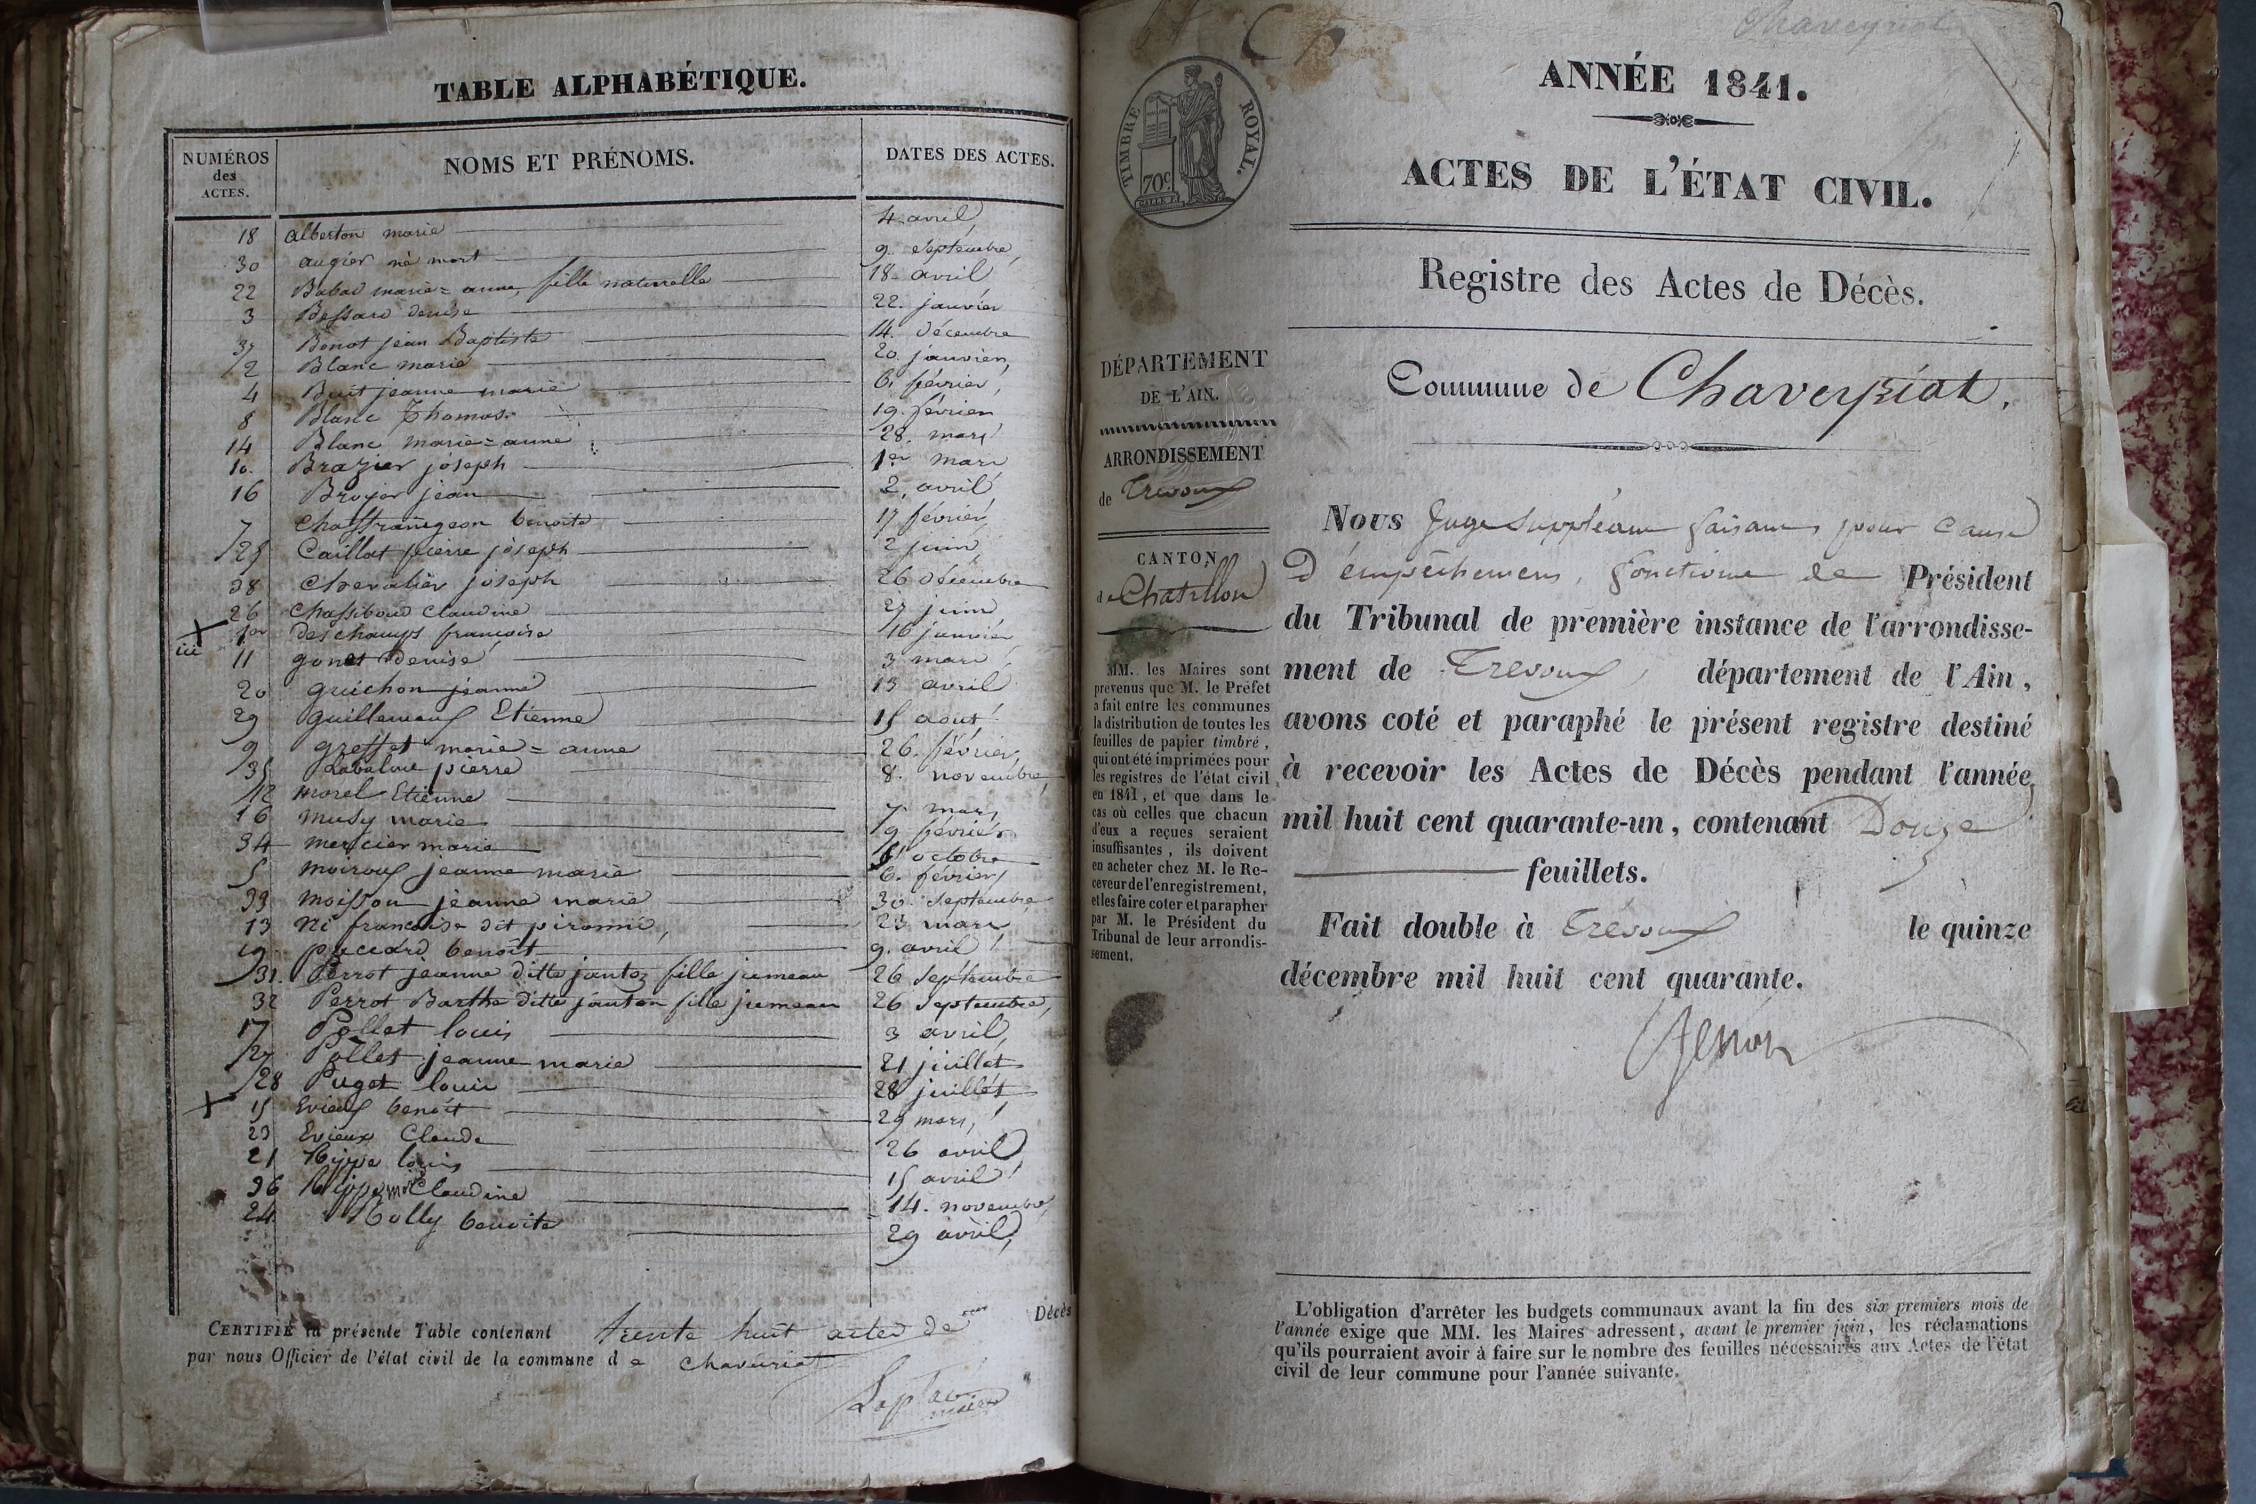 TABLE ALPHABÉTIQUE.
NUMÉROS des ACTES. NOMS ET PRÉNOMS. DATES DES ACTES.
18 alberton marie 4 avril
30 augier né mort 9. septembre
22 Babad marie=anne, fille naturelle 18 avril
3 Bessard denise 22. janvier
37 Benot jean Baptiste 14. décembre
2 Blanc marie 20. janvier
4 Buit jeanne marie 6. février
8 Blanc Thomas 19. février
14 Blanc marie=anne 28. mars
10. Brazier joseph 1er mars
16 Broyer jean 2. avril
7 Chaffrangeon benoite 17 février
25 Caillat pierre joseph 2 juin
38 Chevalier joseph 26 décembre
26 Chassiboud Claudine 27 juin
1er deschamps francoise 16 janvier
11 gonet denise 3 mars
20 guichon jeanne 13 avril
29 guillemaux Etienne 15 aout
9 greffet marie=anne 26. février
35 Labalme pierre 8. novembre
12 morel Etienne 7. mars
16 musy marie 19 février
34 mercier marie octobre
5 moiroux jeanne marie 6. février
33 moisson jeanne marie 30. septembre
13 francoise dit pironné, 23 mars
19 puccard benoît 9. avril
31. Perrot jeanne ditte janton fille jumeau 26 septembre
32 Perrot Barthe ditte janton fille jumeau 26 septembre
17 Pollet louis 3 avril
27 Pollet jeanne marie 21 juillet
28 Puget louis 28 juillet
15 Evieux benoît 29 mars
23 Evieux Claude 26 avril
21 Rippe louis 15 avril
36 Rippe Claudine 14. novembre
24 Rolly benoite 29 avril
CERTIFIÉ la présente Table contenant trente huit actes de Décès
par nous Officier de l'état civil de la commune de chaveyriat
Chaveyriat
TIMBRE ROYAL.
70c
ANNÉE 1841.
ACTES DE L'ÉTAT CIVIL.
Registre des Actes de Décès.
Commune de Chaveyriat.
DÉPARTEMENT
DE L'AIN.
ARRONDISSEMENT
de Trévoux
CANTON
de Chatillon
MM. les Maires sont
prévenus que M. le Préfet
a fait entre les communes
la distribution de toutes les
feuilles de papier timbré,
qui ont été imprimées pour
les registres de l'état civil
en 1841, et que dans le
cas où celles que chacun
d'eux a reçues seraient
insuffisantes, ils doivent
en acheter chez M. le Re-
ceveur de l'enregistrement,
et les faire coter et parapher
par M. le Président du
Tribunal de leur arrondis-
sement.
Nous Juge Suppléant faisant, pour cause
d'empêchement, fonctions de Président
du Tribunal de première instance de l'arrondisse-
ment de Trévoux, département de l'Ain,
avons coté et paraphé le présent registre destiné
à recevoir les Actes de Décès pendant l'année
mil huit cent quarante-un, contenant Douze
feuillets.
Fait double à Trévoux le quinze
décembre mil huit cent quarante.
L'obligation d'arrêter les budgets communaux avant la fin des six premiers mois de
l'année exige que MM. les Maires adressent, avant le premier juin, les réclamations
qu'ils pourraient avoir à faire sur le nombre des feuilles nécessaires aux Actes de l'état
civil de leur commune pour l'année suivante.